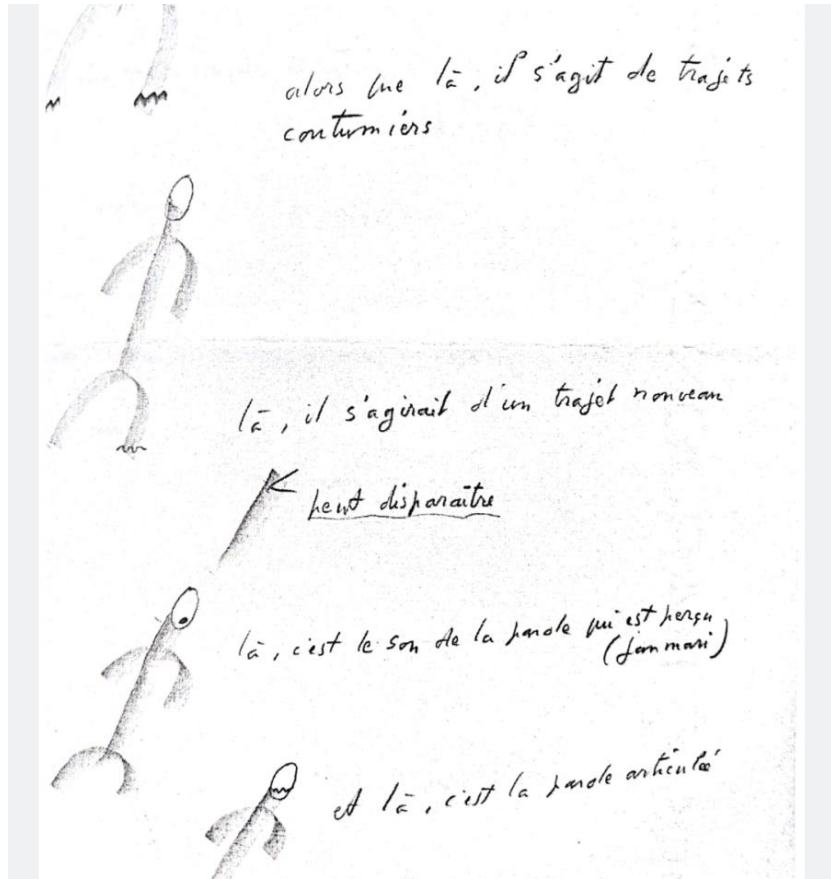 alors que là, il s'agit de trajets
coutumiers
là, il s'agirait d'un trajet nouveau
peut disparaître
là, c'est le son de la parole qui est perçu
(jan mari)
et là, c'est la parole articulée